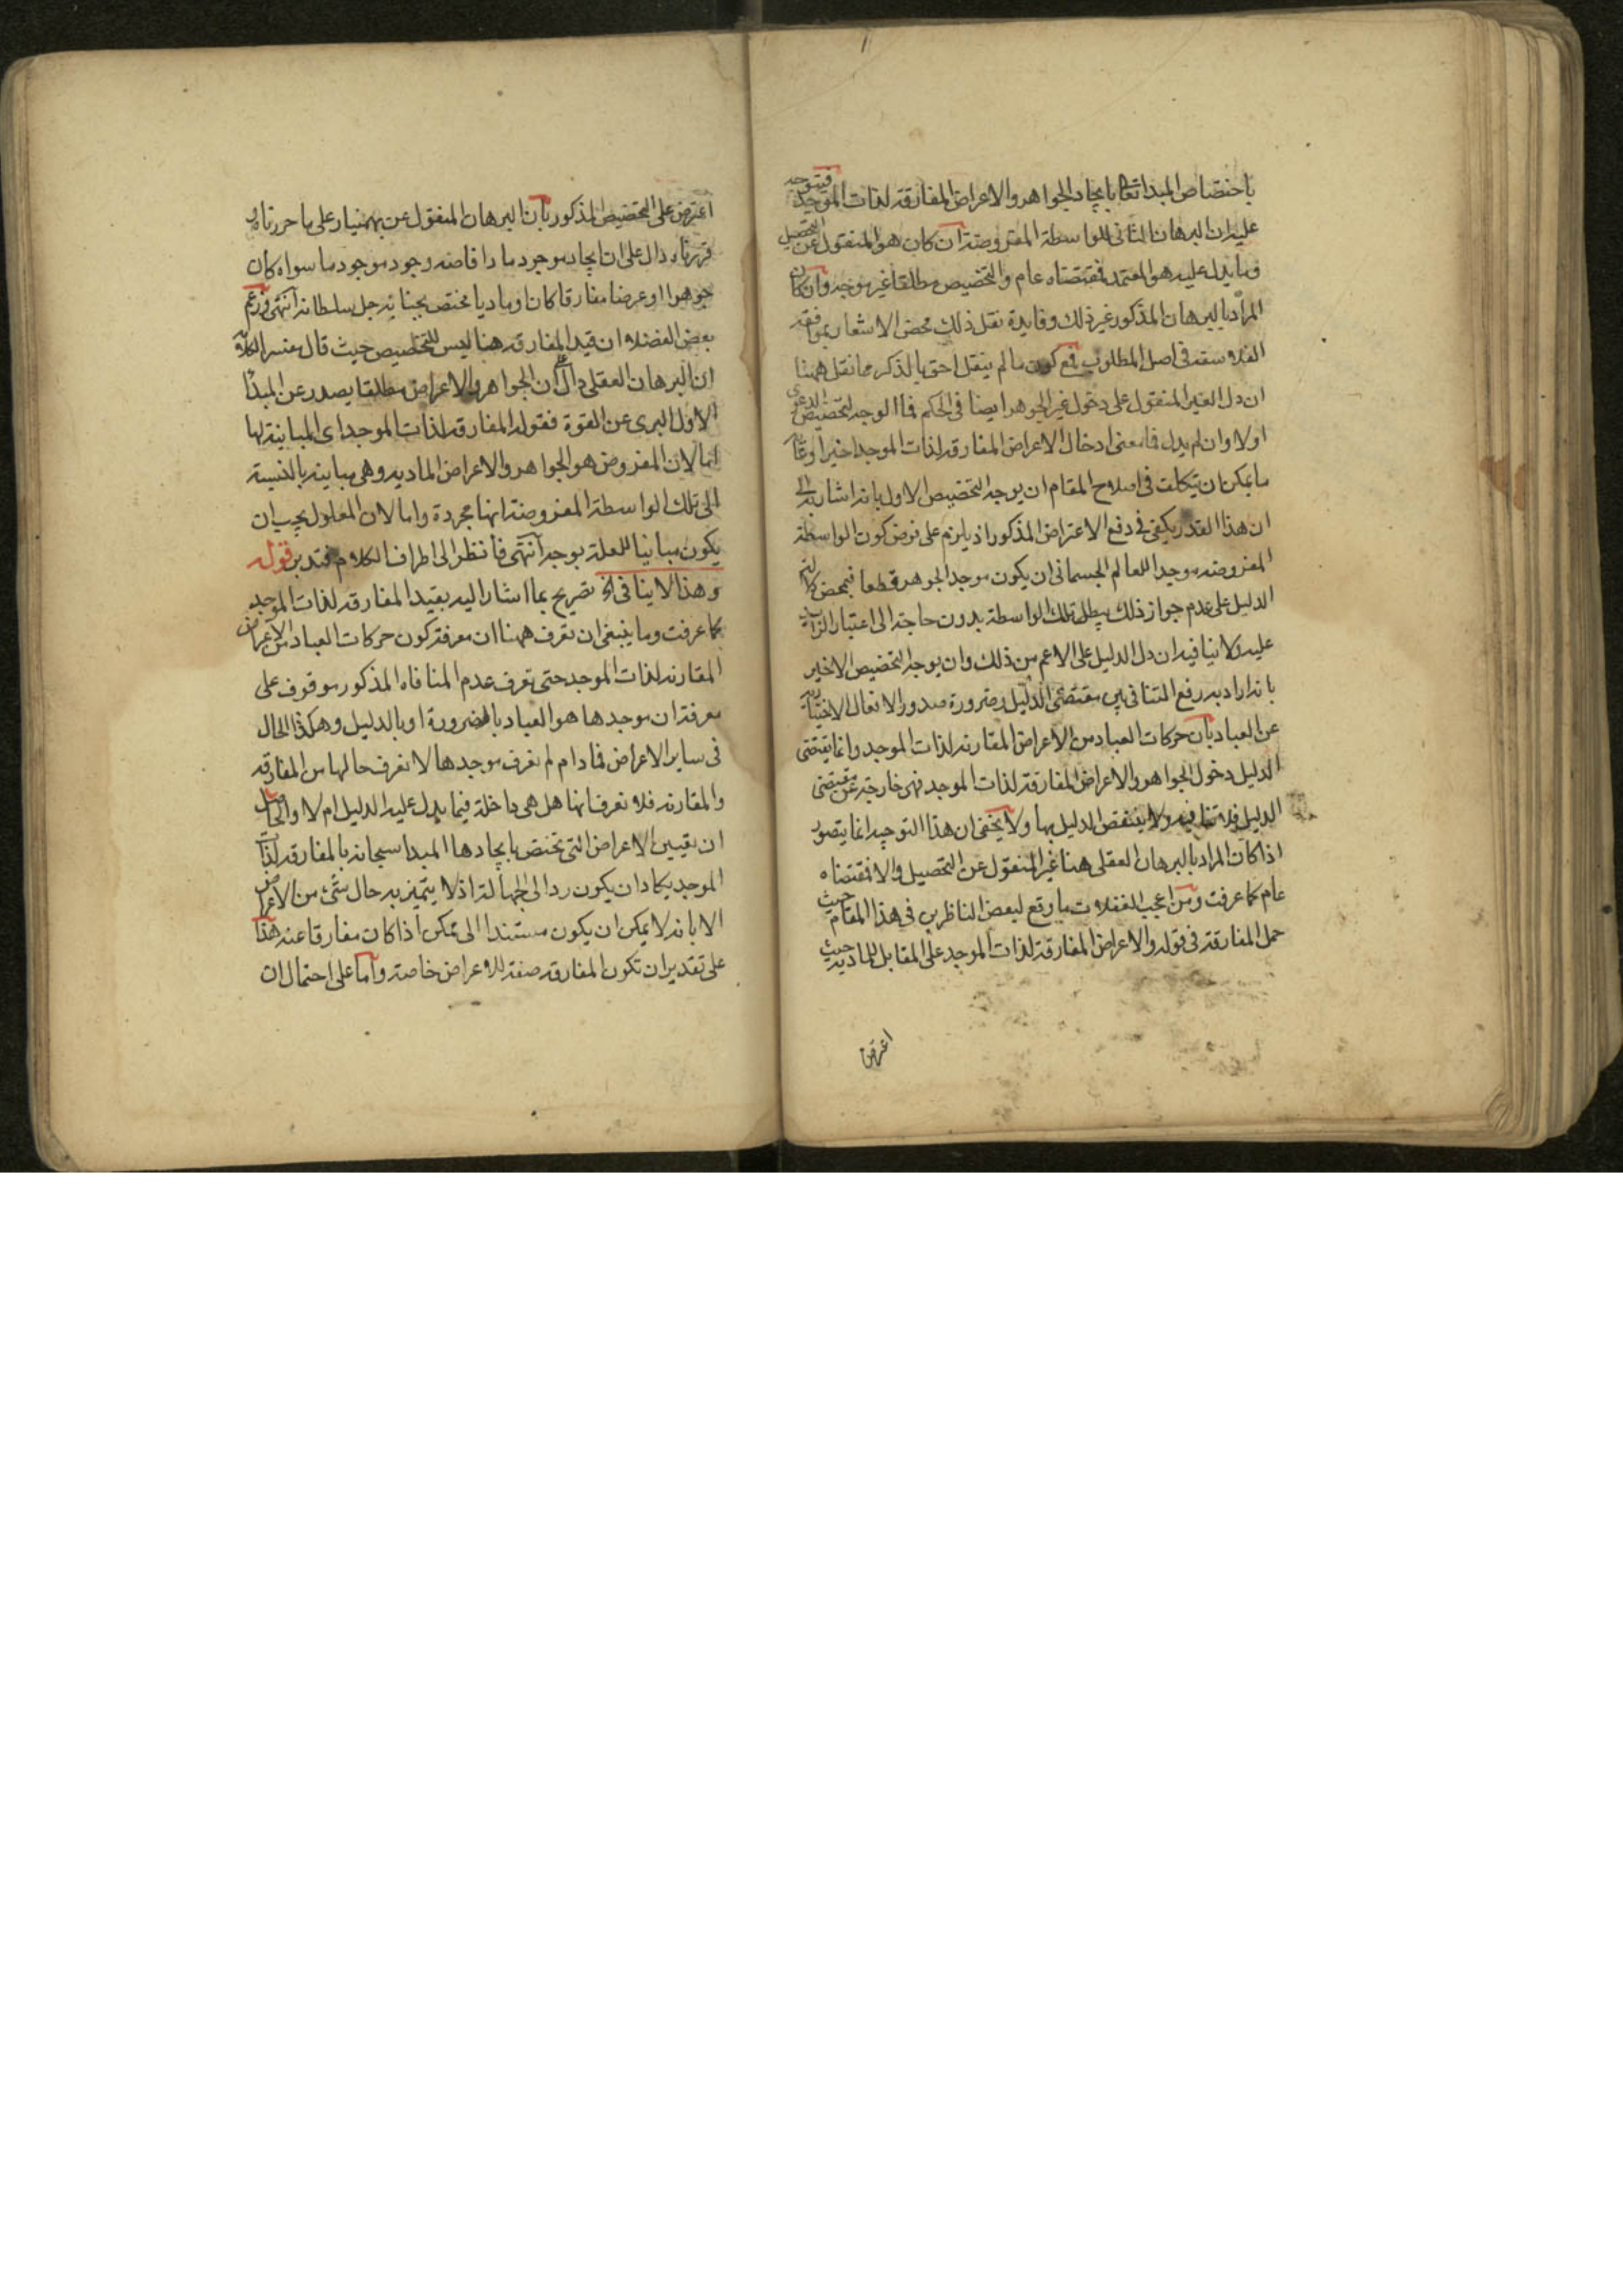 باختصاص المبدا تعا بايجاد الجواهر والاعراض المفارقة لذات الموجد فيتوجه
عليه ان البرهان الثانى للواسطة المفروضة ان كان هو المنقول عن التحصيل
وما يدل عليه هو المعتمد فمقتضاه عام والتخصيص مطلقا غير موجه وان كان
المراد بالبرهان المذكور غير ذلك وفايدة نقل ذلك محض الاشعار بموافقة
الفلاسفة فى اصل المطلوب فمع كون ما لم ينقل احق بالذكر مما نقل ههنا
ان دل الغير المنقول على دخول غير الجوهر ايضا فى الحكم فما الوجه لتخصيص الدعوى
اولا وان لم يدل فما معنى ادخال الاعراض المفارقة لذات الموجد اخيرا وغاية
ما يمكن ان يتكلف فى اصلاح المقام ان يوجه التخصيص الاول بانه اشار به الى
ان هذا القدر يكفى فى دفع الاعتراض المذكور اذ يلزم على فرض كون الواسطة
المفروضه موجدا للعالم الجسمانى ان يكون موجد الجوهر قطعا فبمحض
الدليل على عدم جواز ذلك يبطل تلك الواسطة بدون حاجة الى اعتبار الزايد
عليه ولا ينافيه ان دل الدليل على الاعم من ذلك وان يوجه التخصيص الاخير
بانه اراد به رفع التنافى بين مقتضى الدليل وضرورة صدور الافعال الاختيارية
عن العباد بان حركات العباد من الاعراض المقارنه لذات الموجد وانما يقتضى
الدليل دخول الجواهر والاعراض المفارقة لذات الموجد فهى خارجة عن مقتضى
الدليل فلا تنافيه ولا ينتقض الدليل بها ولا يخفى ان هذا التوجيه انما يتصور
اذا كان المراد بالبرهان العقلى هنا غير المنقول عن التحصيل والا فمقتضاه
عام كما عرفت ومن اعجب الغفلات ما وقع لبعض الناظرين فى هذا المقام حيث
حمل المفارقة فى قوله والاعراض المفارقة لذات الموجد على المقابل للماديه حيث
اعترض
اعترض على التخصيص المذكور بان البرهان المنقول عن بهمنيار على ما حررناه
قررناه دال على ان ايجاد موجود ما وافاضه وجود موجود ما سواه كان
جوهرا او عرضا مفارقا كان او ماديا مختص بجنابه جل سلطانه انتهى وزعم
بعض الفضلاء ان قيد المفارقه هنا ليس للتخصيص حيث قال مفسر الكلامه
ان البرهان العقلى دال على ان الجواهر والاعراض مطلقا يصدر عن المبدا
الاول البرى عن القوة فقوله المفارقه لذات الموجد اى المباينة لها
اما لان المفروض هو الجواهر والاعراض الماديه وهى مباينه بالنسبة
الى تلك الواسطة المفروضة انها مجردة واما لان المعلول يجب ان
يكون مباينا للعلة بوجه انتهى فانظر الى اطراف الكلام فتدبر قوله
وهذا لا ينافى الخ تصريح بما اشار اليه بقيد المفارقه لذات الموجد
كما عرفت وما ينبغى ان تعرف ههنا ان معرفة كون حركات العباد من الاعراض
المقارنه لذات الموجد حتى تعرف عدم المنافاه المذكور موقوف على
معرفة ان موجدها هو العباد بالضرورة او بالدليل وهكذا الحال
فى ساير الاعراض فما دام لم نعرف موجدها لا نعرف حالها من المفارقه
والمقارنه فلا نعرف انها هل هى داخلة فيما يدل عليه الدليل ام لا والحاصل
ان تعيين الاعراض التى تختص بايجادها المبدا سبحانه بالمفارقه لذات
الموجد يكاد ان يكون ردا الى الجهالة اذ لا يتميز به حال شئ من الاعراض
الا بانه لا يمكن ان يكون مستندا الى ممكن اذا كان مفارقا عنه هذا
على تقدير ان تكون المفارقه صفة للاعراض خاصة واما على احتمال ان